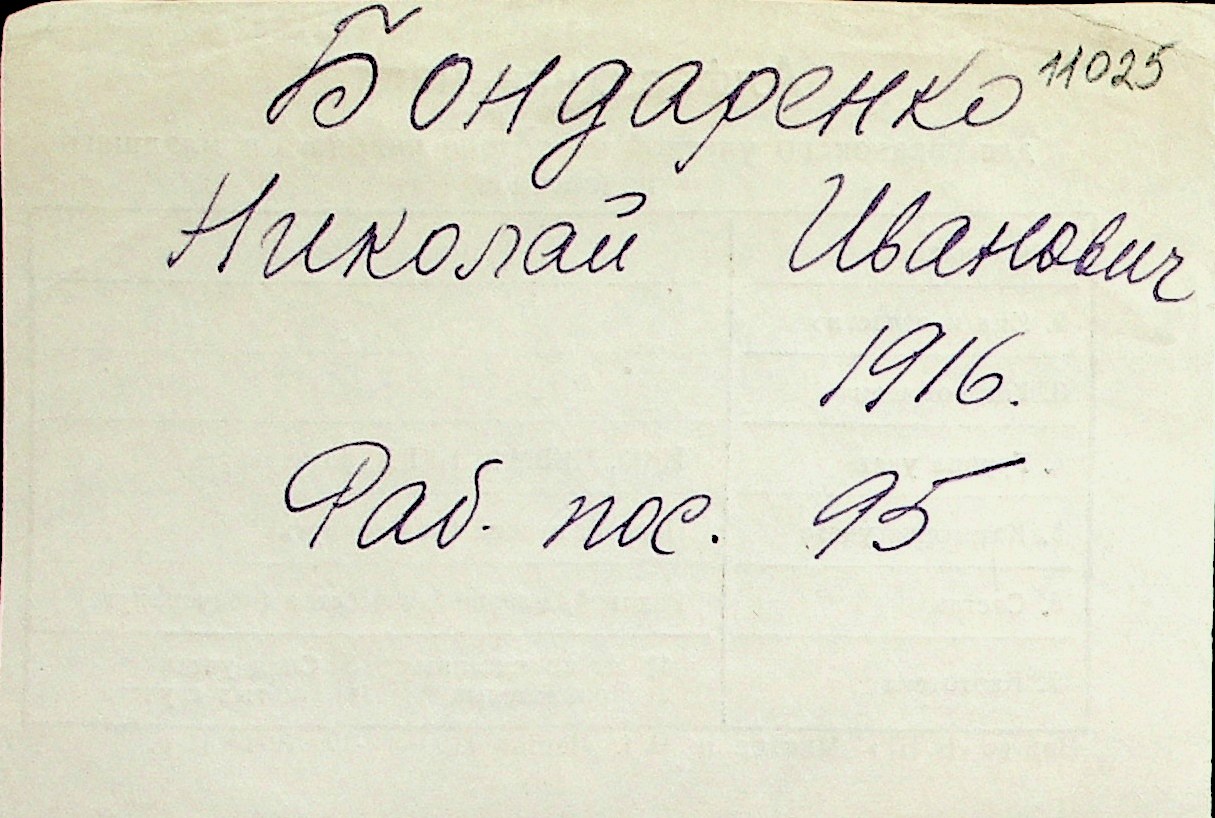 Бондаренко 11025
Николай Иванович
1916.
Раб. пос. 95